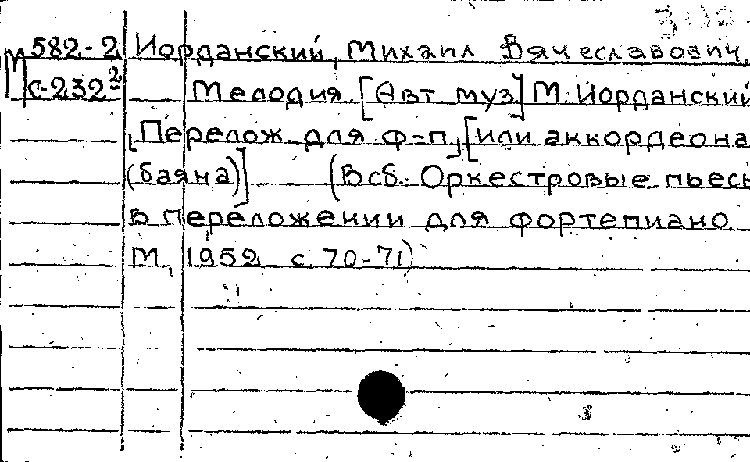 М 582-2 Иорданский, Михаил Вячеславович.
с-232² Мелодия. [Авт муз] М. Иорданский
[Перелож. для ф=п.] [или аккордеона
(баяна)] (В сб: Оркестровые пьесы
в переложении для фортепиано
М, 1952 с. 70-71)